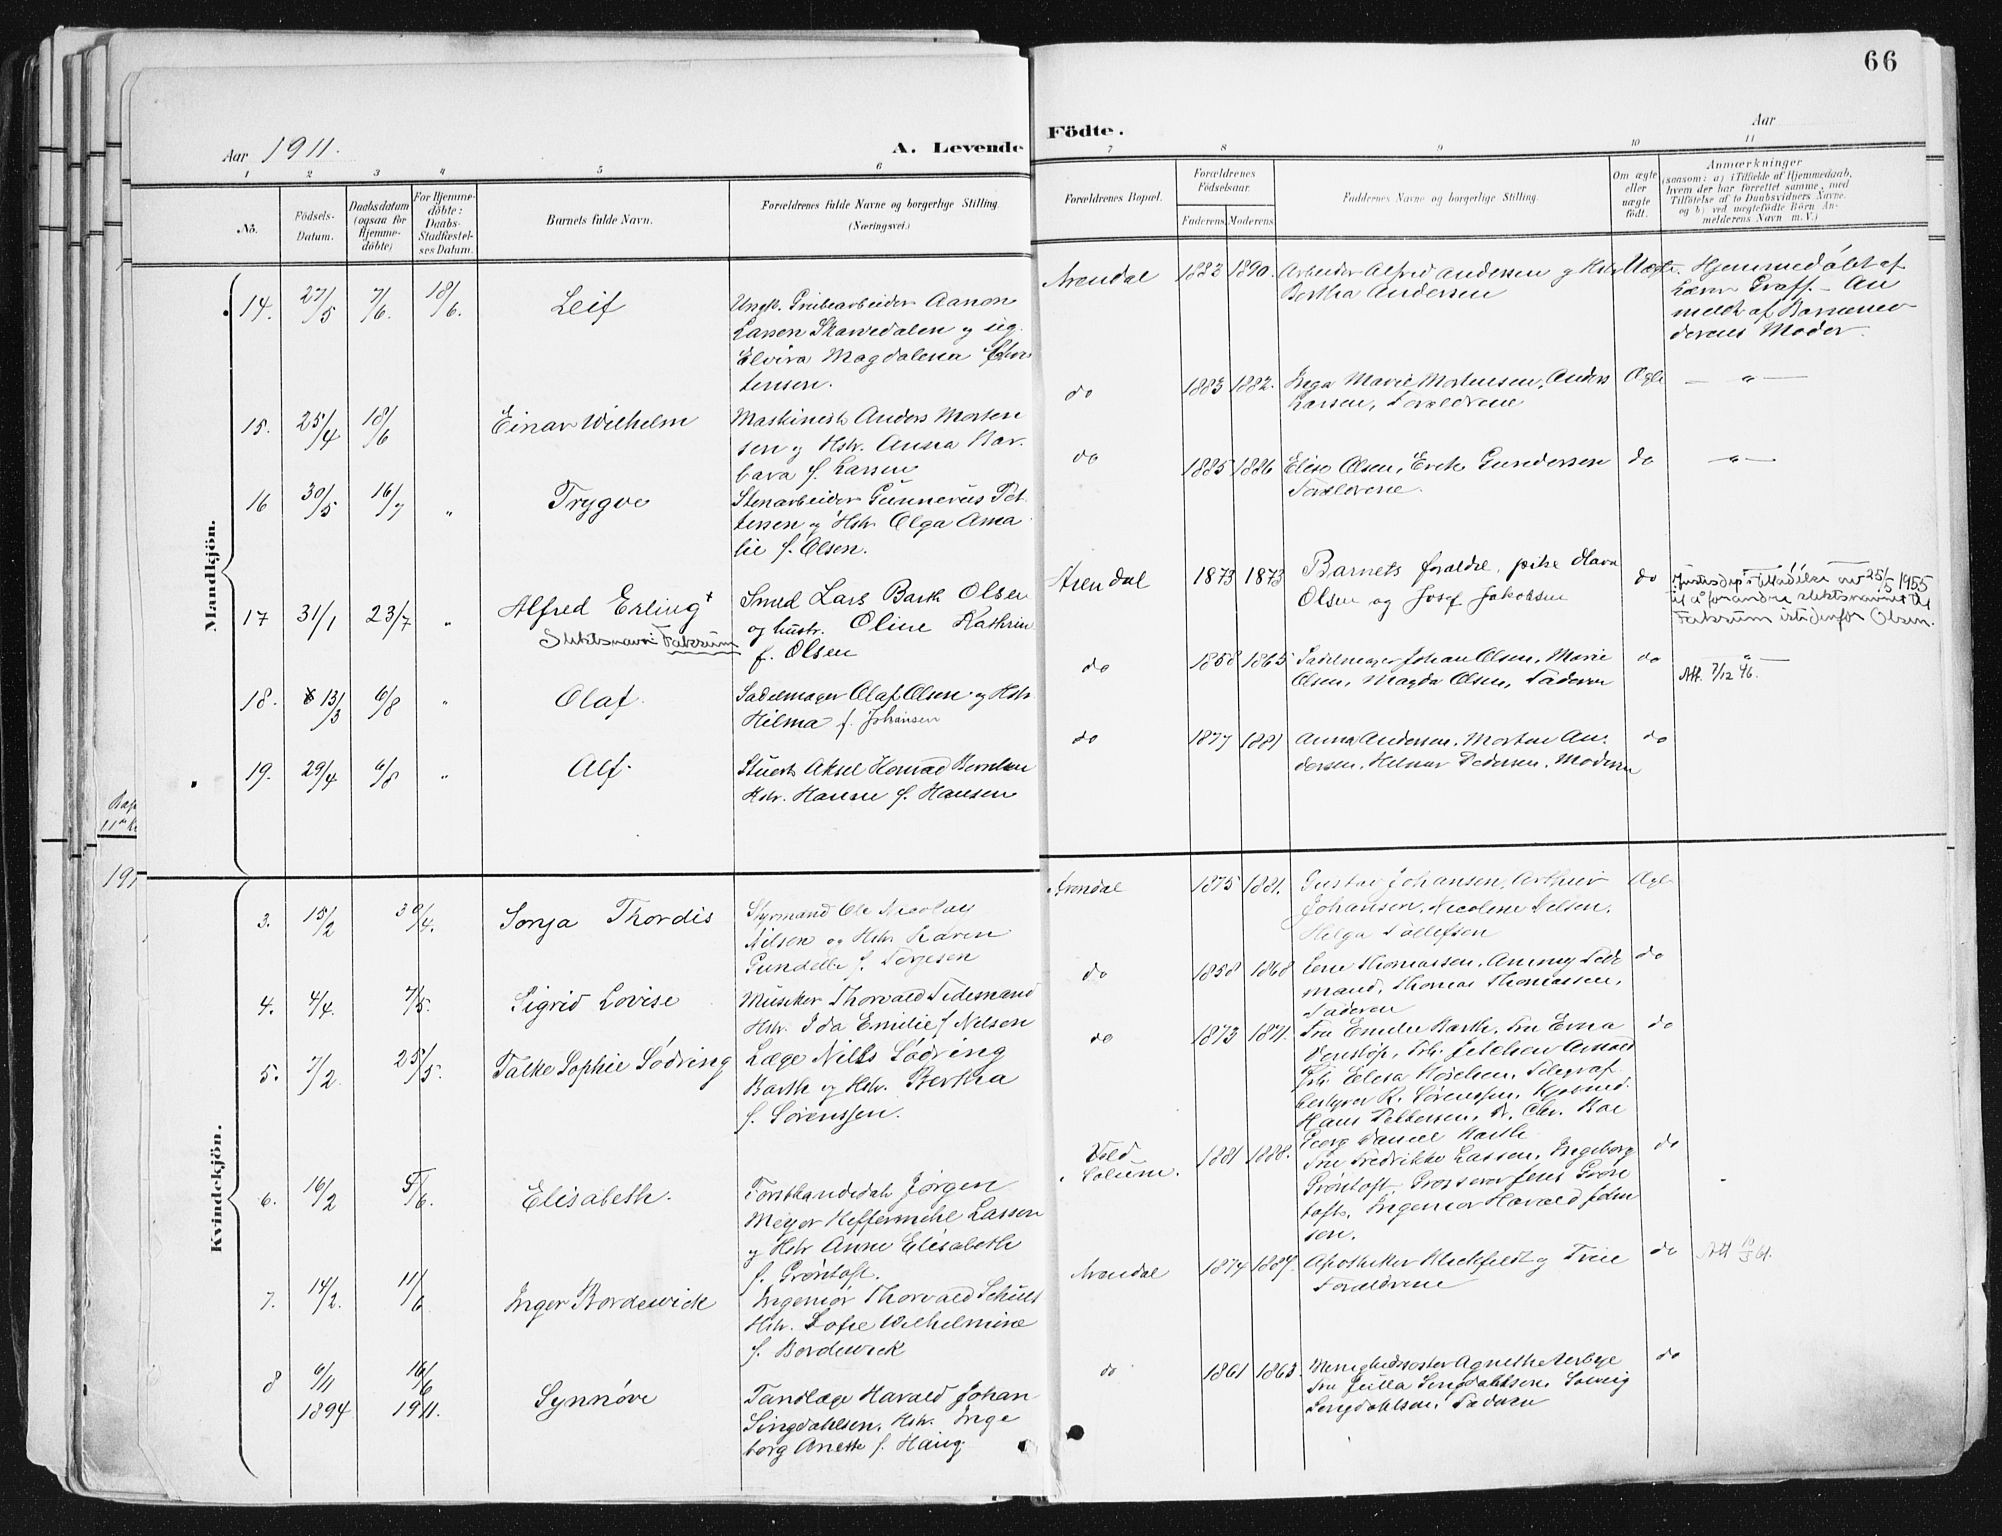 66
Aar 1911.
A. Levende
Födte.
Aar
1 2 3 4 5 6
7 8 9 10 11
Nó.
Födsels-Datum.
Daabsdatum (ogsaa for Hjemmedöbte)
For Hjemmedöbte: Daabs-Stadfæstelses Datum.
Barnets fulde Navn.
Forældrenes fulde Navne og borgerlige Stilling. (Næringsvei.)
Forældrenes Bopæl.
Forældrenes Fødselsaar.
Faderens. Moderens.
Faddernes Navne og borgerlige Stilling.
Om ægte eller uægte födt.
Anmærkninger
(saasom: a) i Tilfælde af Hjemmedaab,
hvem der har forrettet samme, med
Tilföielse af to Daabsvidners Navne.
og b) ved uægtefödte Börn An-
melderens Navn m. V.)
Mandkjön.
14. 27/5 7/6. 18/6. Leif
Ungk. Grubearbeider Aanon
Larsen Skarvedalen og ug.
Elvira Magdalena
tensen.
Arendal 1882 1890.
Arbeider Alfred Andersen og Hstr
Bertha Andersen
Uægte.
Hjemmedöbt af
Lærer Graff. An
meldt af Barnemo
derens Moder.
15. 25/4 18/6 Einar Wilhelm
Maskinist Anders Morten
sen og Hstr. Anna Bar.
bara f. Larsen
do 1883 1882.
Inga Marie Mortensen, Anders
Larsen, Forældrene
Ægte — " —
16 30/5 16/7 " Trygve
Stenarbeider Gunnerus Pet
tersen og Hstr Olga Ama
lie f. Olsen.
do 1885 1886
Elise Olsen, Erik Gundersen
Forældrene.
do — " —
17 31/1 23/7 " Alfred Erling +
Slektsnavn: Faksum
Smed Lars Bark Olsen
og hustr. Oline Kathrin
f. Olsen
Arendal 1873 1873
Barnets foraldre, pike Havn
Olsen og Josef Jakobsen
do
Justisdep's tilladelse av 25/5 1955
til å forandre slektsnavnet til
Faksum istedenfor Olsen.
18. 13/3 6/8 " Olaf.
Sadelmager Olaf Olsen og Hstr
Hilma f. Johansen
do 1858 1865
Sadelmager Johan Olsen, Marie
Olsen, Magda Olsen, Faderen
do — " —
Att. 7/12 46.
19. 29/4 6/8 " Alf.
Stuert Aksel Konrad Berntsen
Hstr. Hanne f. Hansen
do 1877 1881
Anna Andersen, Morten An.
dersen, Helmar Pedersen, Moderen
do
Kvindekjön.
3. 15/2 30/4. Sonja Thordis
Styrmand Ole Nicolay
Nilsen og Hstr Karen
Gundelle f. Terjesen
Arendal 1875 1881.
Gustav Johansen, Arthur
Johansen, Nicoline Nilsen,
Helga Tollefsen
Ægte
4. 4/4. 7/5. Sigrid Lovise
Musiker Thorvald Tidemand
Hstr. Ida Emilie f Nelson
do 1858 1868
Lene Thomassen, Ammy Tide
mand, Thomas Thomassen,
Faderen
do
5. 7/2 25/5. Falke Sophie Södring
Læge Nills Södring
Barth og Hstr. Bertha
f. Sörenssen.
do 1873 1871.
Fru Emilie Barth, Fru Erna
Hans Pettersen, Dr. Chr. Boe
Georg Daniel Barth
do
6. 16/2 5/6. Elisabeth.
Forstkandidat Jörgen
Meyer Heffermehl Lassen
og Hstr Anne Elisabeth
f. Gröntoft.
Vold
i Solum. 1881 1888.
Fru Fredrikke Lassen, Ingeborg
Gröntoft, Grosserer Jens Grön
toft, Ingeniör Harald John
sen.
do
7. 14/2. 11/6 Inger Bordewick
Ingeniör Thorvald Schult
Hstr. Sofie Wilhelmine
f. Bordewick
Arendal 1874 1887.
Apotheker Kleekfeldt og Frue
Forældrene
do
8 6/11 1894 16/6 1911. Synnöve
Tandlæge Harald Johan
Singdahlsen, Hstr. Inge
borg Anette f. Haug
do 1861 1863.
Menighedssöster Agnethe Aerbye
Fru Julla Singdahlsen, Solveig
Singdahlsen, Faderen
do